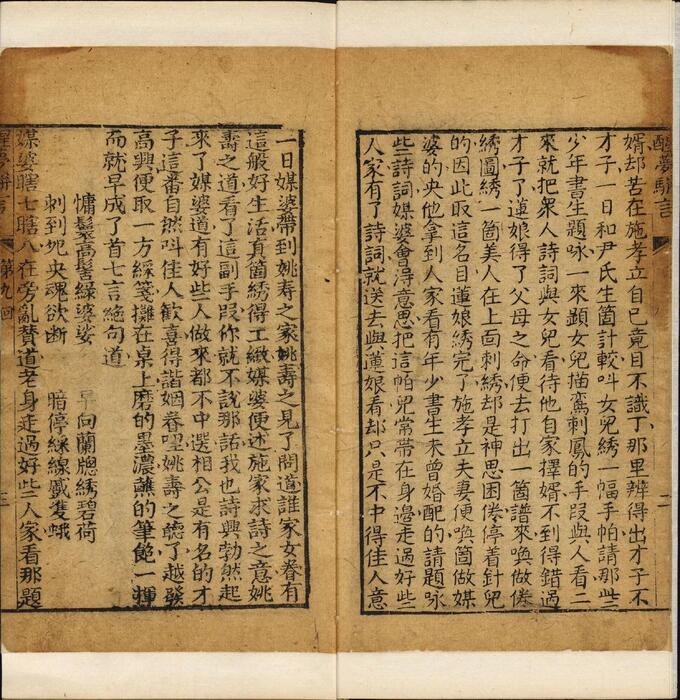 醒夢駢言
二
婿却苦在施孝立自己竟目不識丁那里辨得出才子不
才子一日和尹氏生箇計較呌女兒綉一幅手帕請那些
少年書生題咏一來顕女兒描鸞刺鳳的手段與人看二
來就把衆人詩詞與女兒看待他自家擇婿不到得錯過
才子了蓮娘得了父母之命便去打出一箇譜來喚做倦
綉圖綉一箇美人在上面刺綉却是神思困倦停着針兒
的因此取這名目蓮娘綉完了施孝立夫妻便喚箇做媒
婆的央他拿到人家看有年少書生未曾婚配的請題咏
些詩詞媒婆會得意思把這帕兒常帶在身邊走過好些
人家有了詩詞就送去與蓮娘看却只是不中得佳人意
一日媒婆帶到姚寿之家姚壽之見了問道誰家女眷有
這般好生活真箇綉得工緻媒婆便述施家求詩之意姚
壽之道看了這副手段你就不說那話我也詩興勃然起
來了媒婆道有好些人做來都不中選相公是有名的才
子這番自然呌佳人歡喜得諧姻眷哩姚壽之聽了越發
高興便取一方綵箋攤在桌上磨的墨濃蘸的筆飽一揮
而就早成了首七言絕句道
慵鬟高髻綠婆娑 早向蘭牕綉碧荷
刺到央魂欲断 暗停綵線蹙雙蛾
媒婆瞎七瞎八在旁亂賛道老身走過好些人家看那題
醒夢駢言
第九回
三